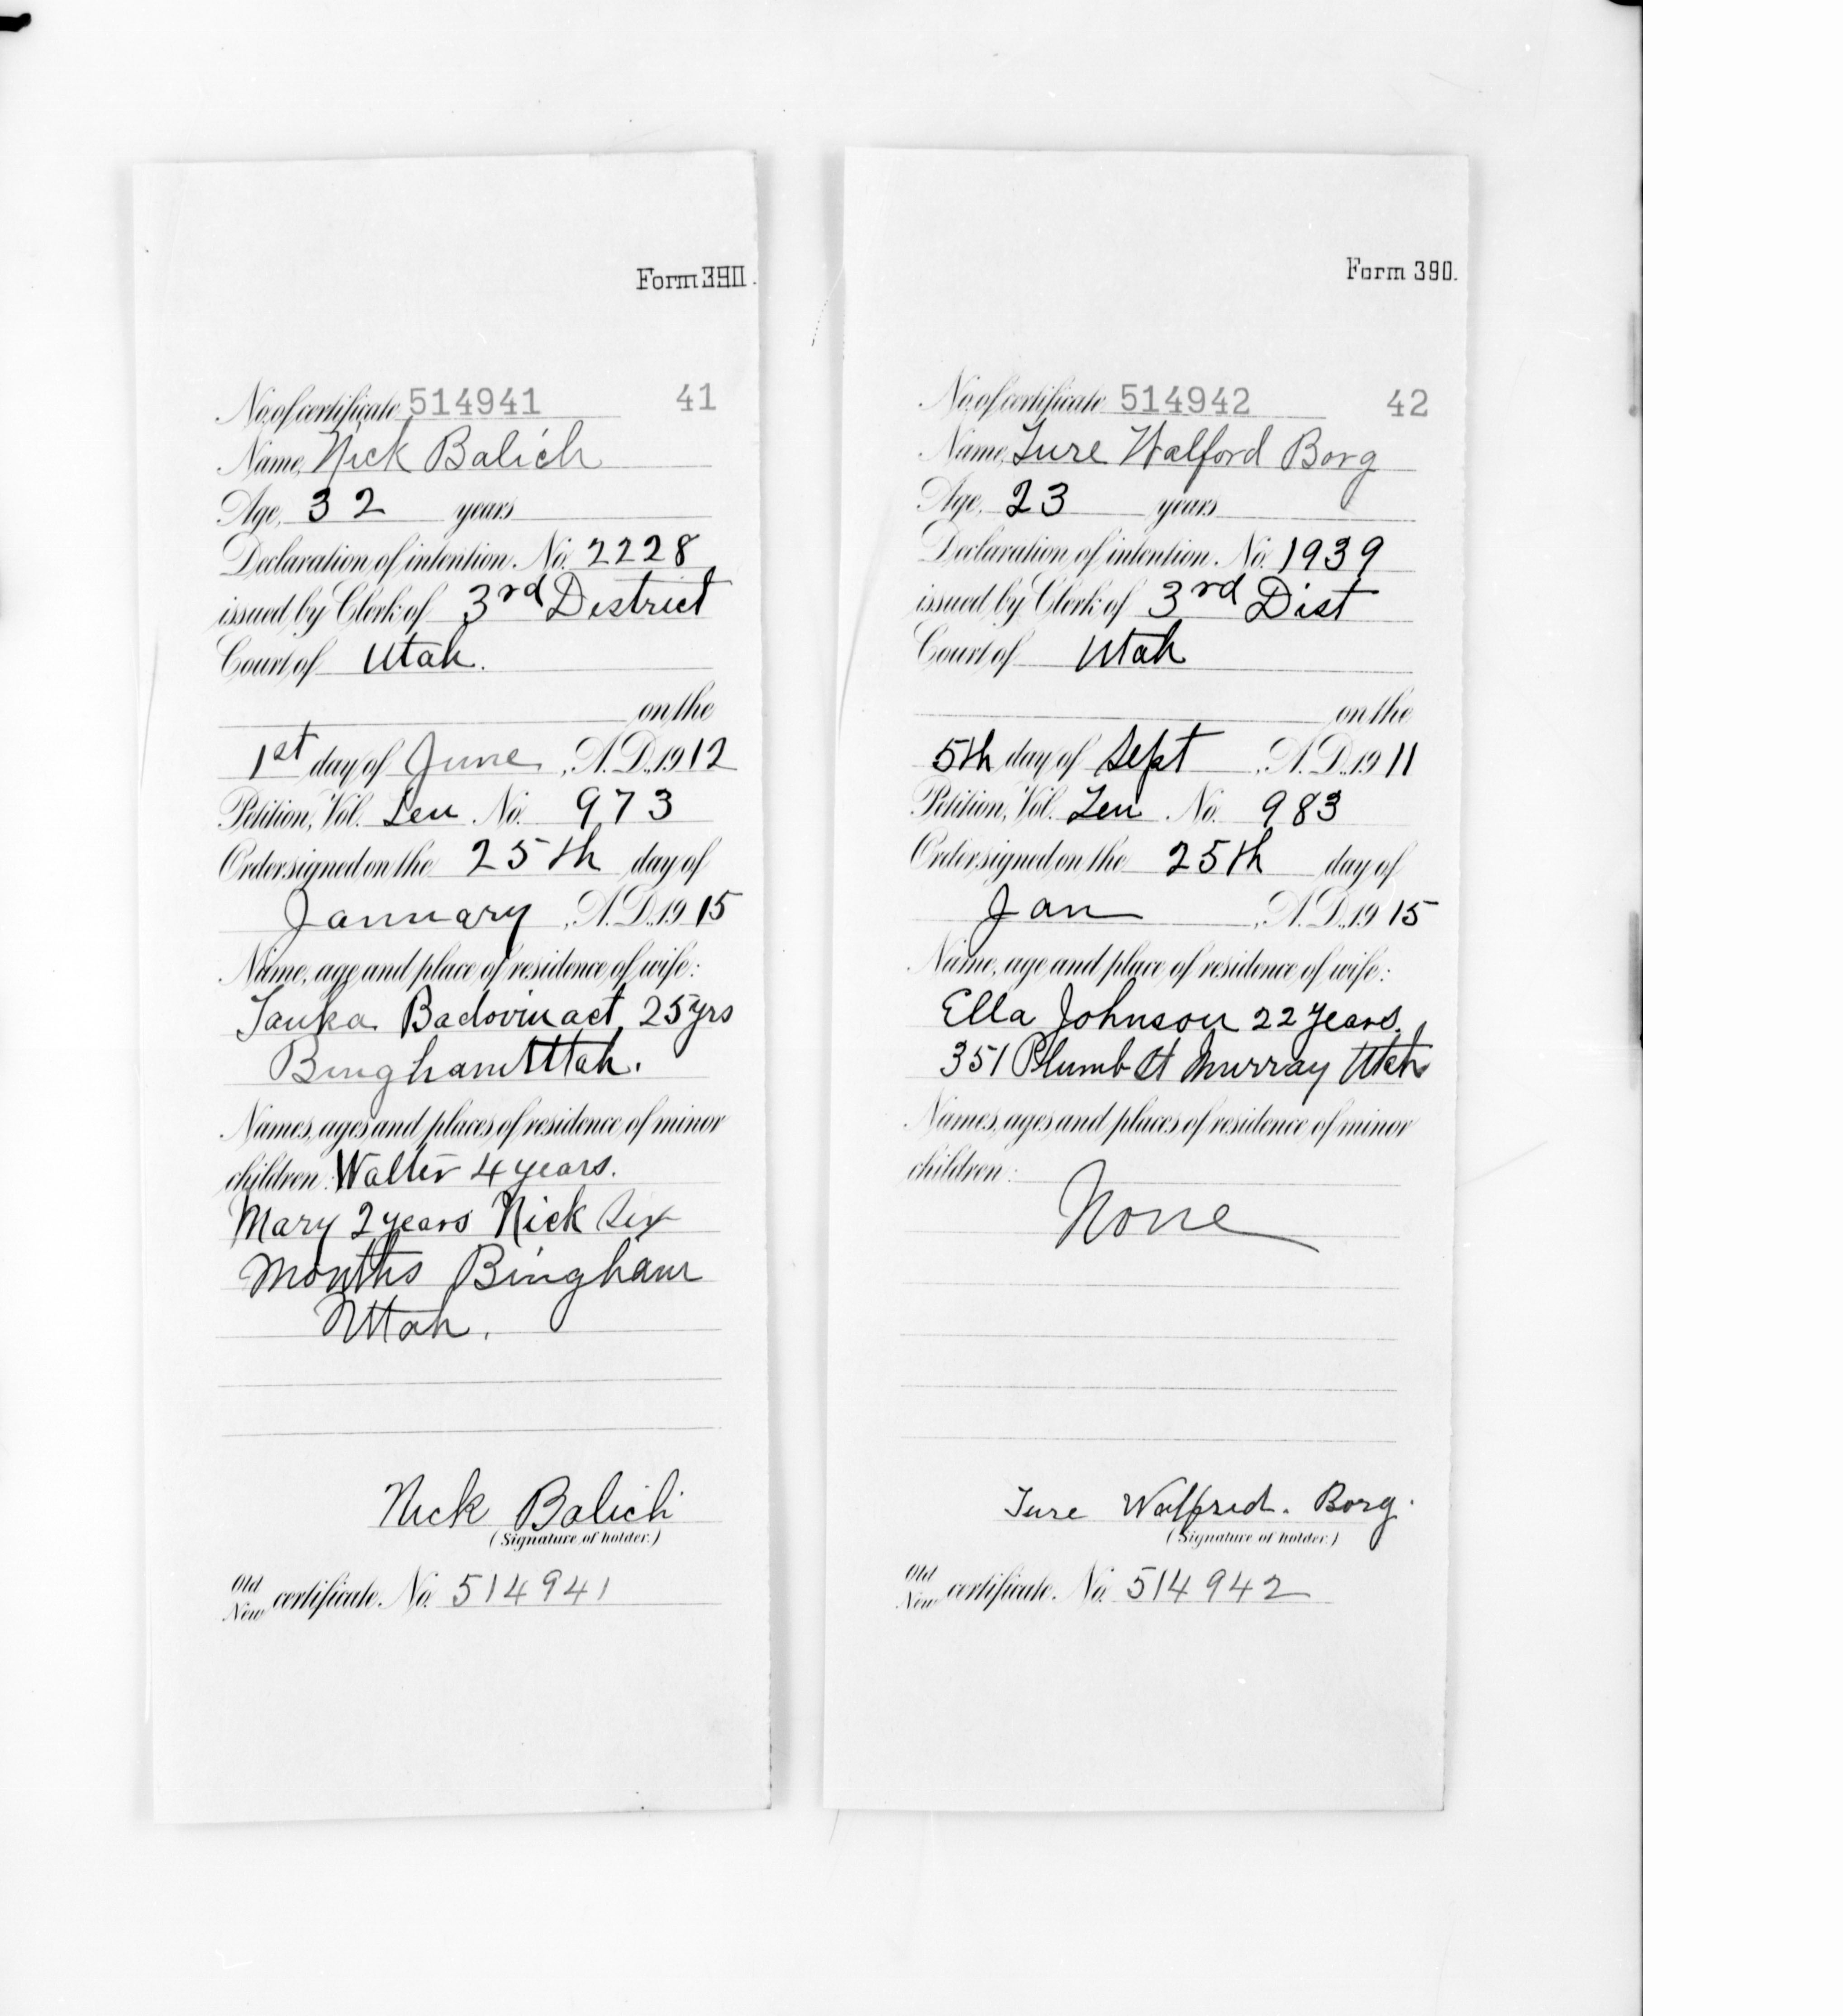 Form 390.
No. of certificate 514941 41
Name, Nick Balich
Age, 32 years
Declaration of intention. No. 2228
issued by Clerk of 3rd District
Court of Utah.
on the
1st day of June, A.D., 1912
Petition, Vol. Ten No. 973
Order signed on the 25th day of
January, A.D., 1915
Name, age and place of residence of wife:
Badovinact 25 yrs
Bingham Utah.
Names, ages and places of residence of minor
children: Walter 4 years.
Mary 2 years Nick Six
Months Bingham
Utah.
Nick Balich
(Signature of holder.)
Old
New certificate. No. 514941
Form 390.
No. of certificate 514942 42
Name, Ture Walford Borg
Age, 23 years
Declaration of intention. No. 1939
issued by Clerk of 3rd Dist
Court of Utah
on the
5th day of Sept, A.D., 1911
Petition, Vol. Ten No. 983
Order signed on the 25th day of
Jan, A.D., 1915
Name, age and place of residence of wife:
Ella Johnson 22 Years.
351 Plumb St Murray Utah
Names, ages and places of residence of minor
children:
None
Ture Walfred. Borg.
(Signature of holder.)
Old
New certificate. No. 514942